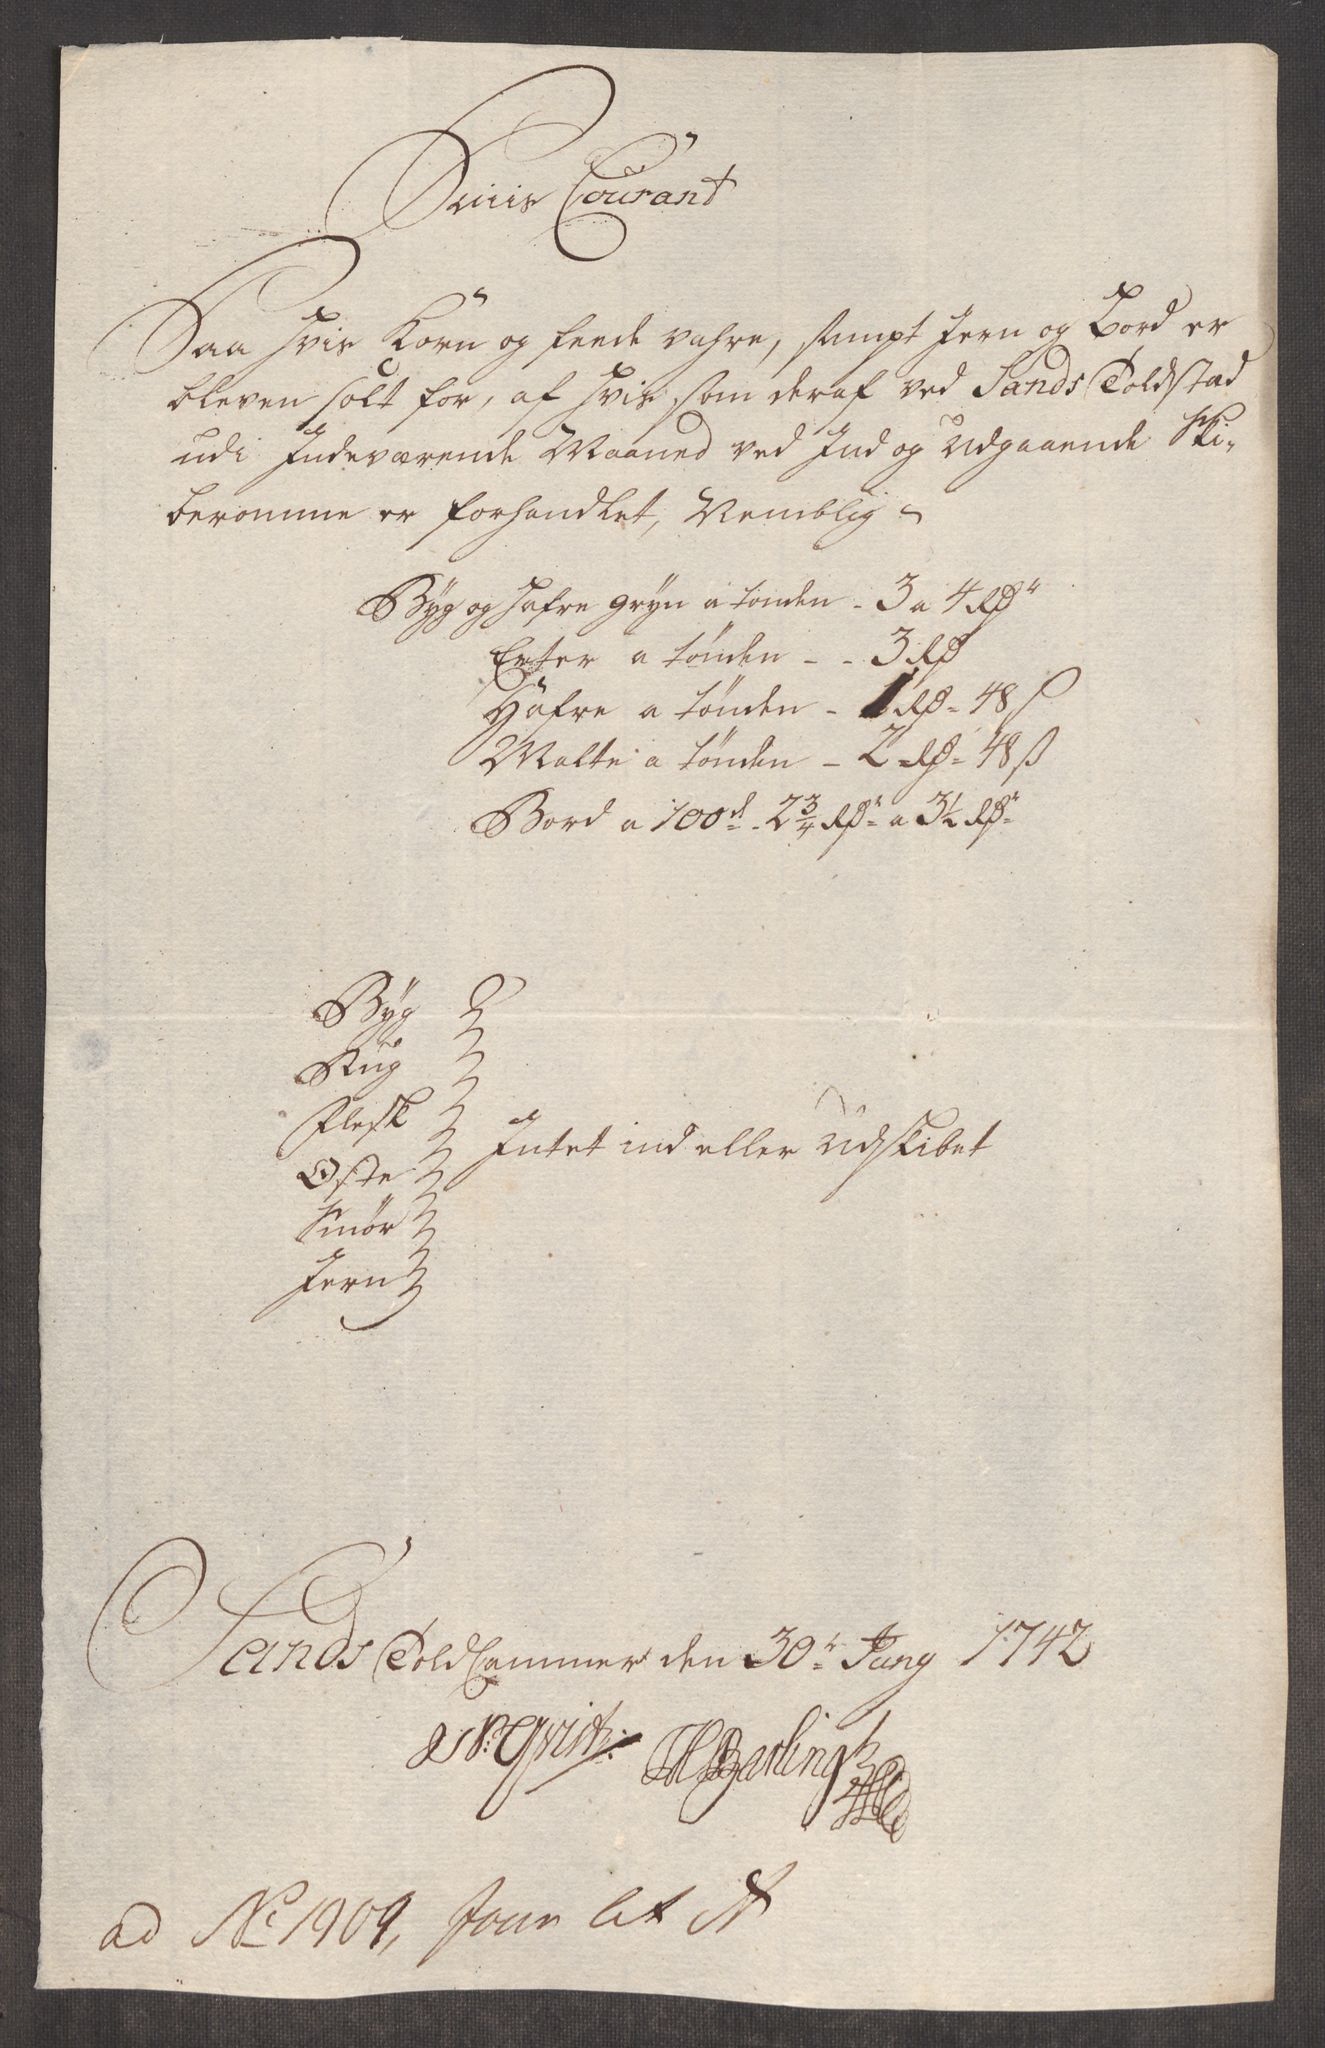 Priis Courant
Saa hvis Korn og feede vahre, sampt Jern og Bord er
bleven solt for, af hvis som deraf ved Sands Toldstad
udi Indeværende Maaned ved Ind og Udgaaende Ski-
beromme er forhandlet, Nemblig
Byg og hafre gryn a tønden - 3 a 4 Rdr
Erter a tønden - - 3 Rd
Hafre a tønden - 1 Rd - 48 ß
Malte a tønden - 2 Rd - 48 ß
Bord a 100d - 2 3/4 Rdr a 3 1/2 Rdr
Byg
Rug
Flesk
Oste
Smør
Jern
Intet ind eller udskibet
Sands Told Cammer den 30te Juny 1742
Qvist H Barling
ad No 1909, Jour lit A